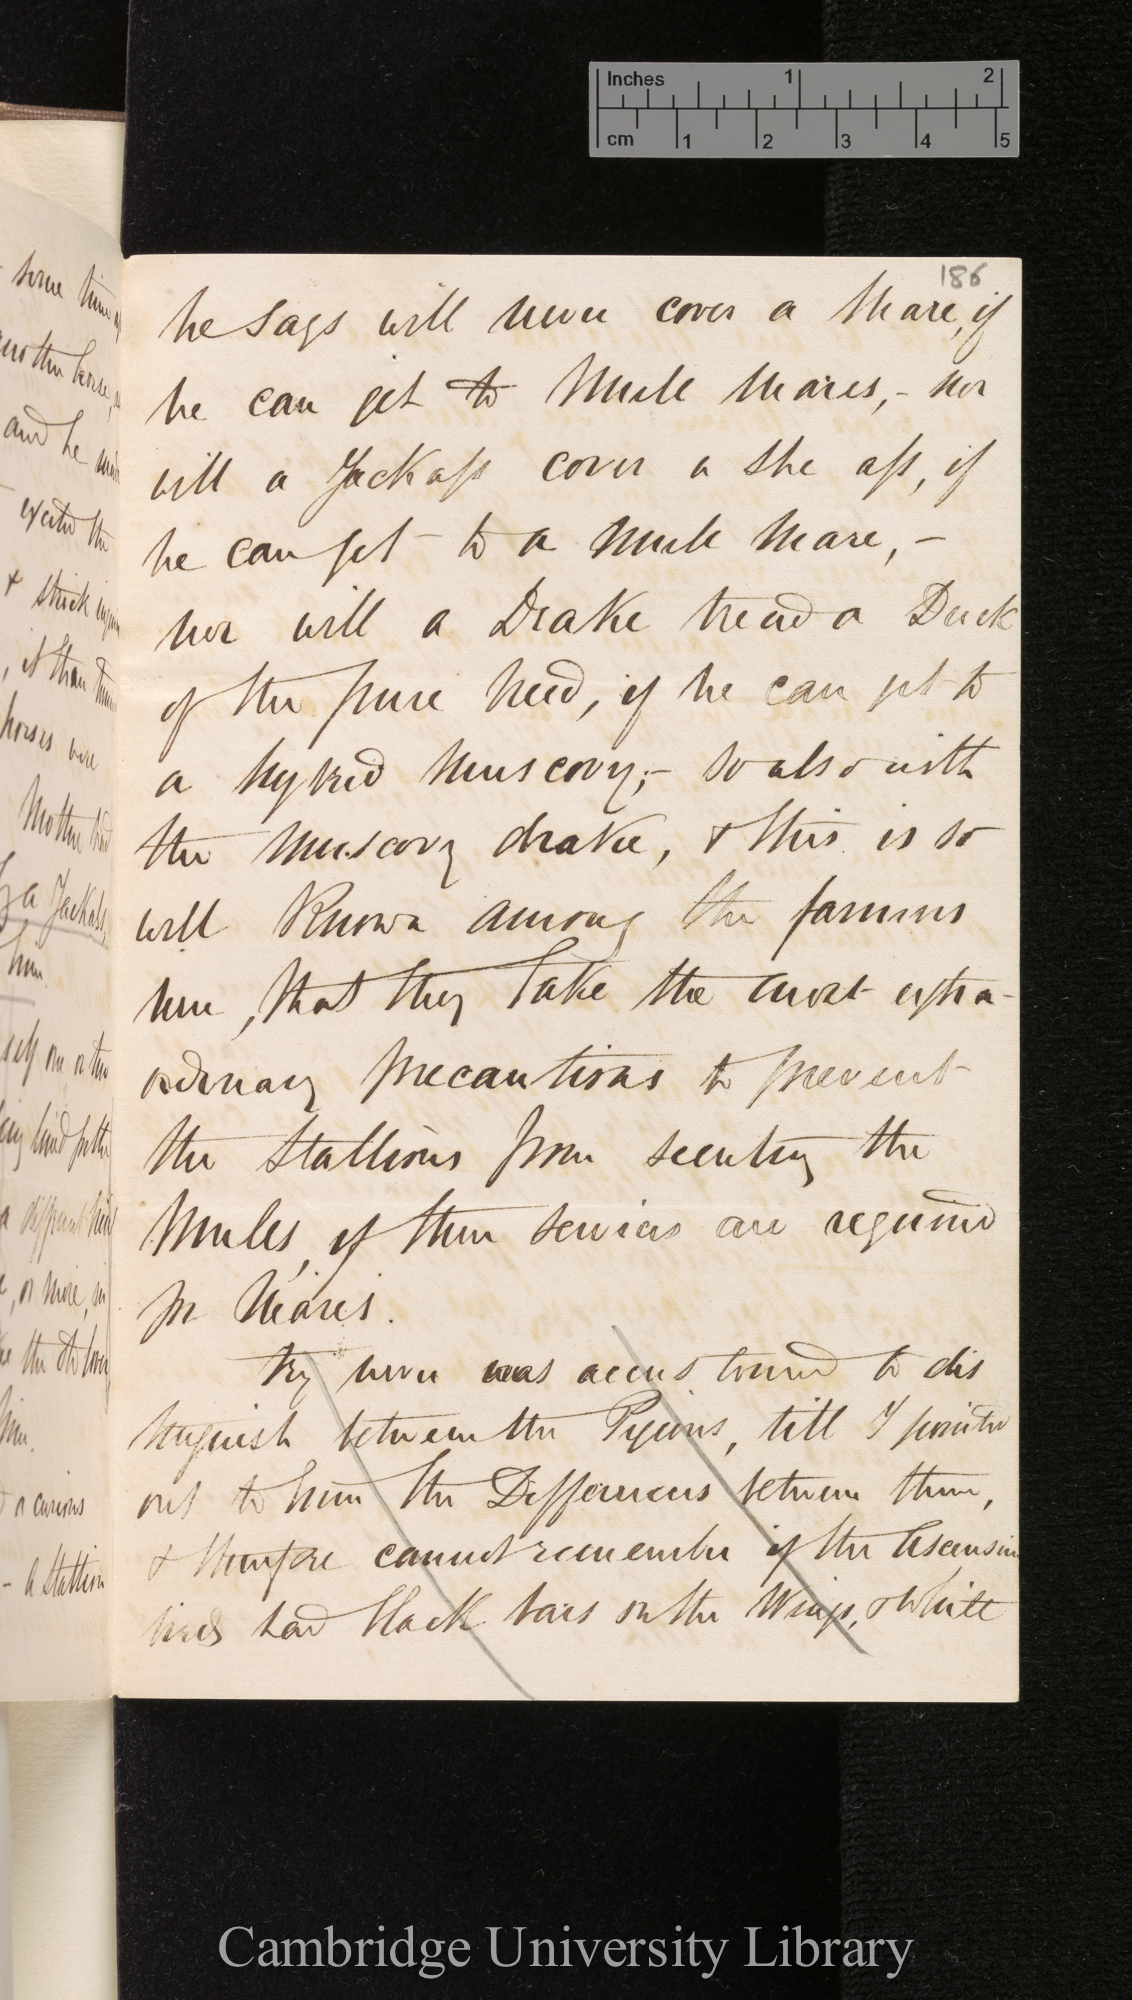 Inches 1 2
cm 1 2 3 4 5
186
he says will never cover a Mare, if
he can get to Mule Mares,- nor
will a Jackass cover a she ass, if
he can get to a Mule Mare,-
nor will a Drake tread a Duck
of the pure breed, if he can get to
a hybrid Muscovy;- so also with
the Muscovy drake, & this is so
well known among the farmers
here, that they take the most extra-
ordinary precautions to prevent
the Stallions from scenting the
Mules, if their services are required
for Mares.
Try never was accustomed to dis
tinguish between the Pigeons, till I pointed
out to him the Differences between them,
& therefore cannot remember if the Ascension
birds had black bars on the Wings, & white
some time
another horse,
and he
excite the
& struck
, it than
horses were
Mother had
by a Jackass,
him.
self one or two
a different
, or more, in
the
him.
a curious
- a Stallion
Cambridge University Library